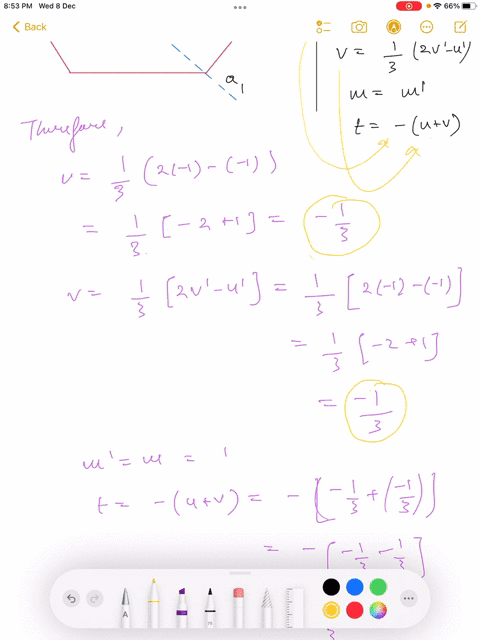 8:53 PM Wed 8 Dec
66%
Back
v = 1/3 (2v'-u')
m = m'
t = -(u+v)
a1
Therefore,
v = 1/3 (2(-1) - (-1))
= 1/3 [-2+1] = -1/3
v = 1/3 [2v'-u'] = 1/3 [2(-1) - (-1)]
= 1/3 [-2+1]
= -1/3
m' = m = 1
t = -(u+v) = -[-1/3 + (-1/3)]
= -[-1/3 - 1/3]
3
A